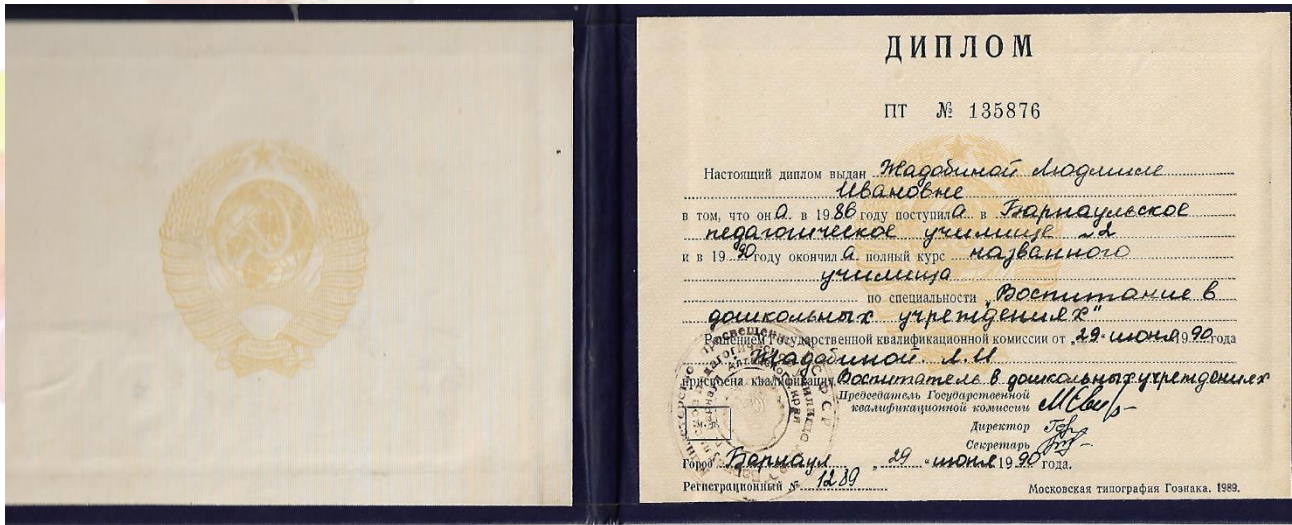 ДИПЛОМ
ПТ № 135876
Настоящий диплом выдан Жадобиной Людмиле
Ивановне
в том, что он а в 1986 году поступил а в Барнаульское
педагогическое училище №2
и в 1990 году окончил а полный курс названного
училища
по специальности „Воспитание в
дошкольных учреждениях"
Решением Государственной квалификационной комиссии от „29" июня 1990 года
Жадобиной Л.И
присвоена квалификация Воспитатель в дошкольных учреждениях
Председатель Государственной
квалификационной комиссии
Директор
Секретарь
Город Барнаул „29" июня 1990 года.
Регистрационный № 1289
Московская типография Гознака. 1989.